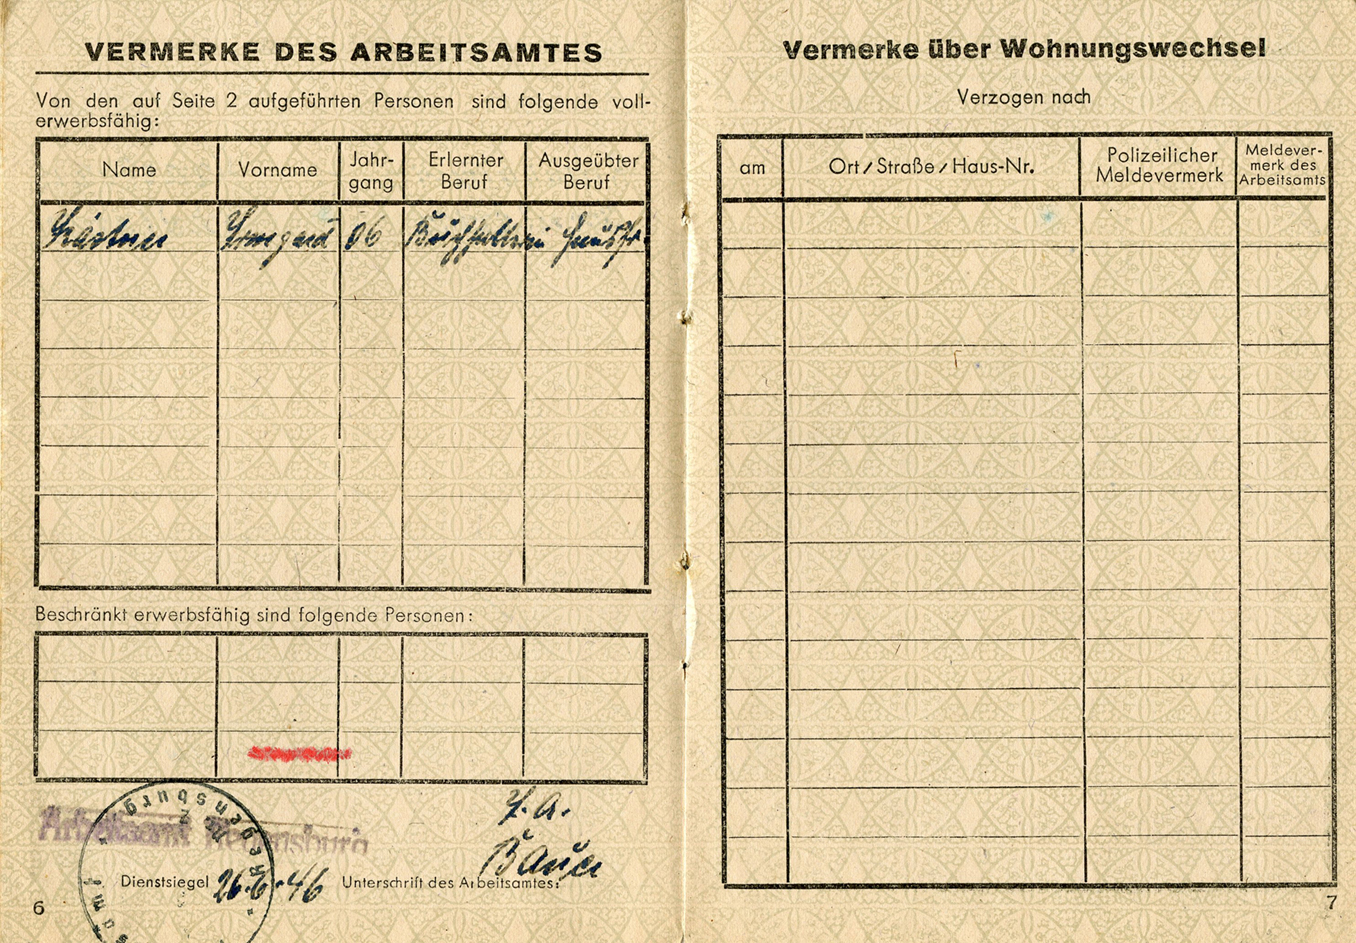 VERMERKE DES ARBEITSAMTES
Von den auf Seite 2 aufgeführten Personen sind folgende voll-
erwerbsfähig:
Name Vorname Jahr-gang Erlernter Beruf Ausgeübter Beruf
Kästner Irmgard 06 Buchhalterin Hausfr.
Beschränkt erwerbsfähig sind folgende Personen:
Arbeitsamt Regensburg
Regensburg
I. A.
Bauer
Dienstsiegel 26.6.46 Unterschrift des Arbeitsamtes:
6
Vermerke über Wohnungswechsel
Verzogen nach
am Ort/Straße/Haus-Nr. Polizeilicher Meldevermerk Meldever-merk des Arbeitsamts
7